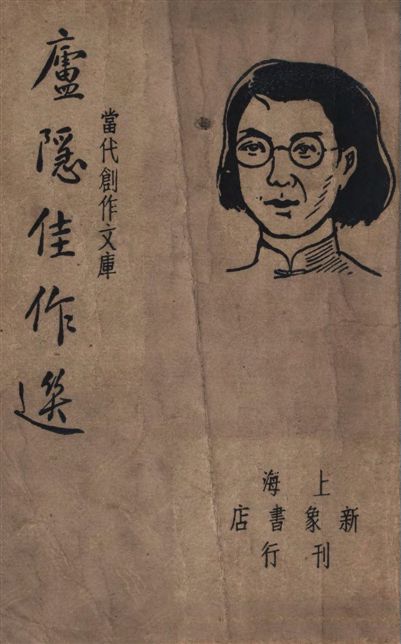 廬隱佳作選
當代創作文庫
上海
新象書店
刊行